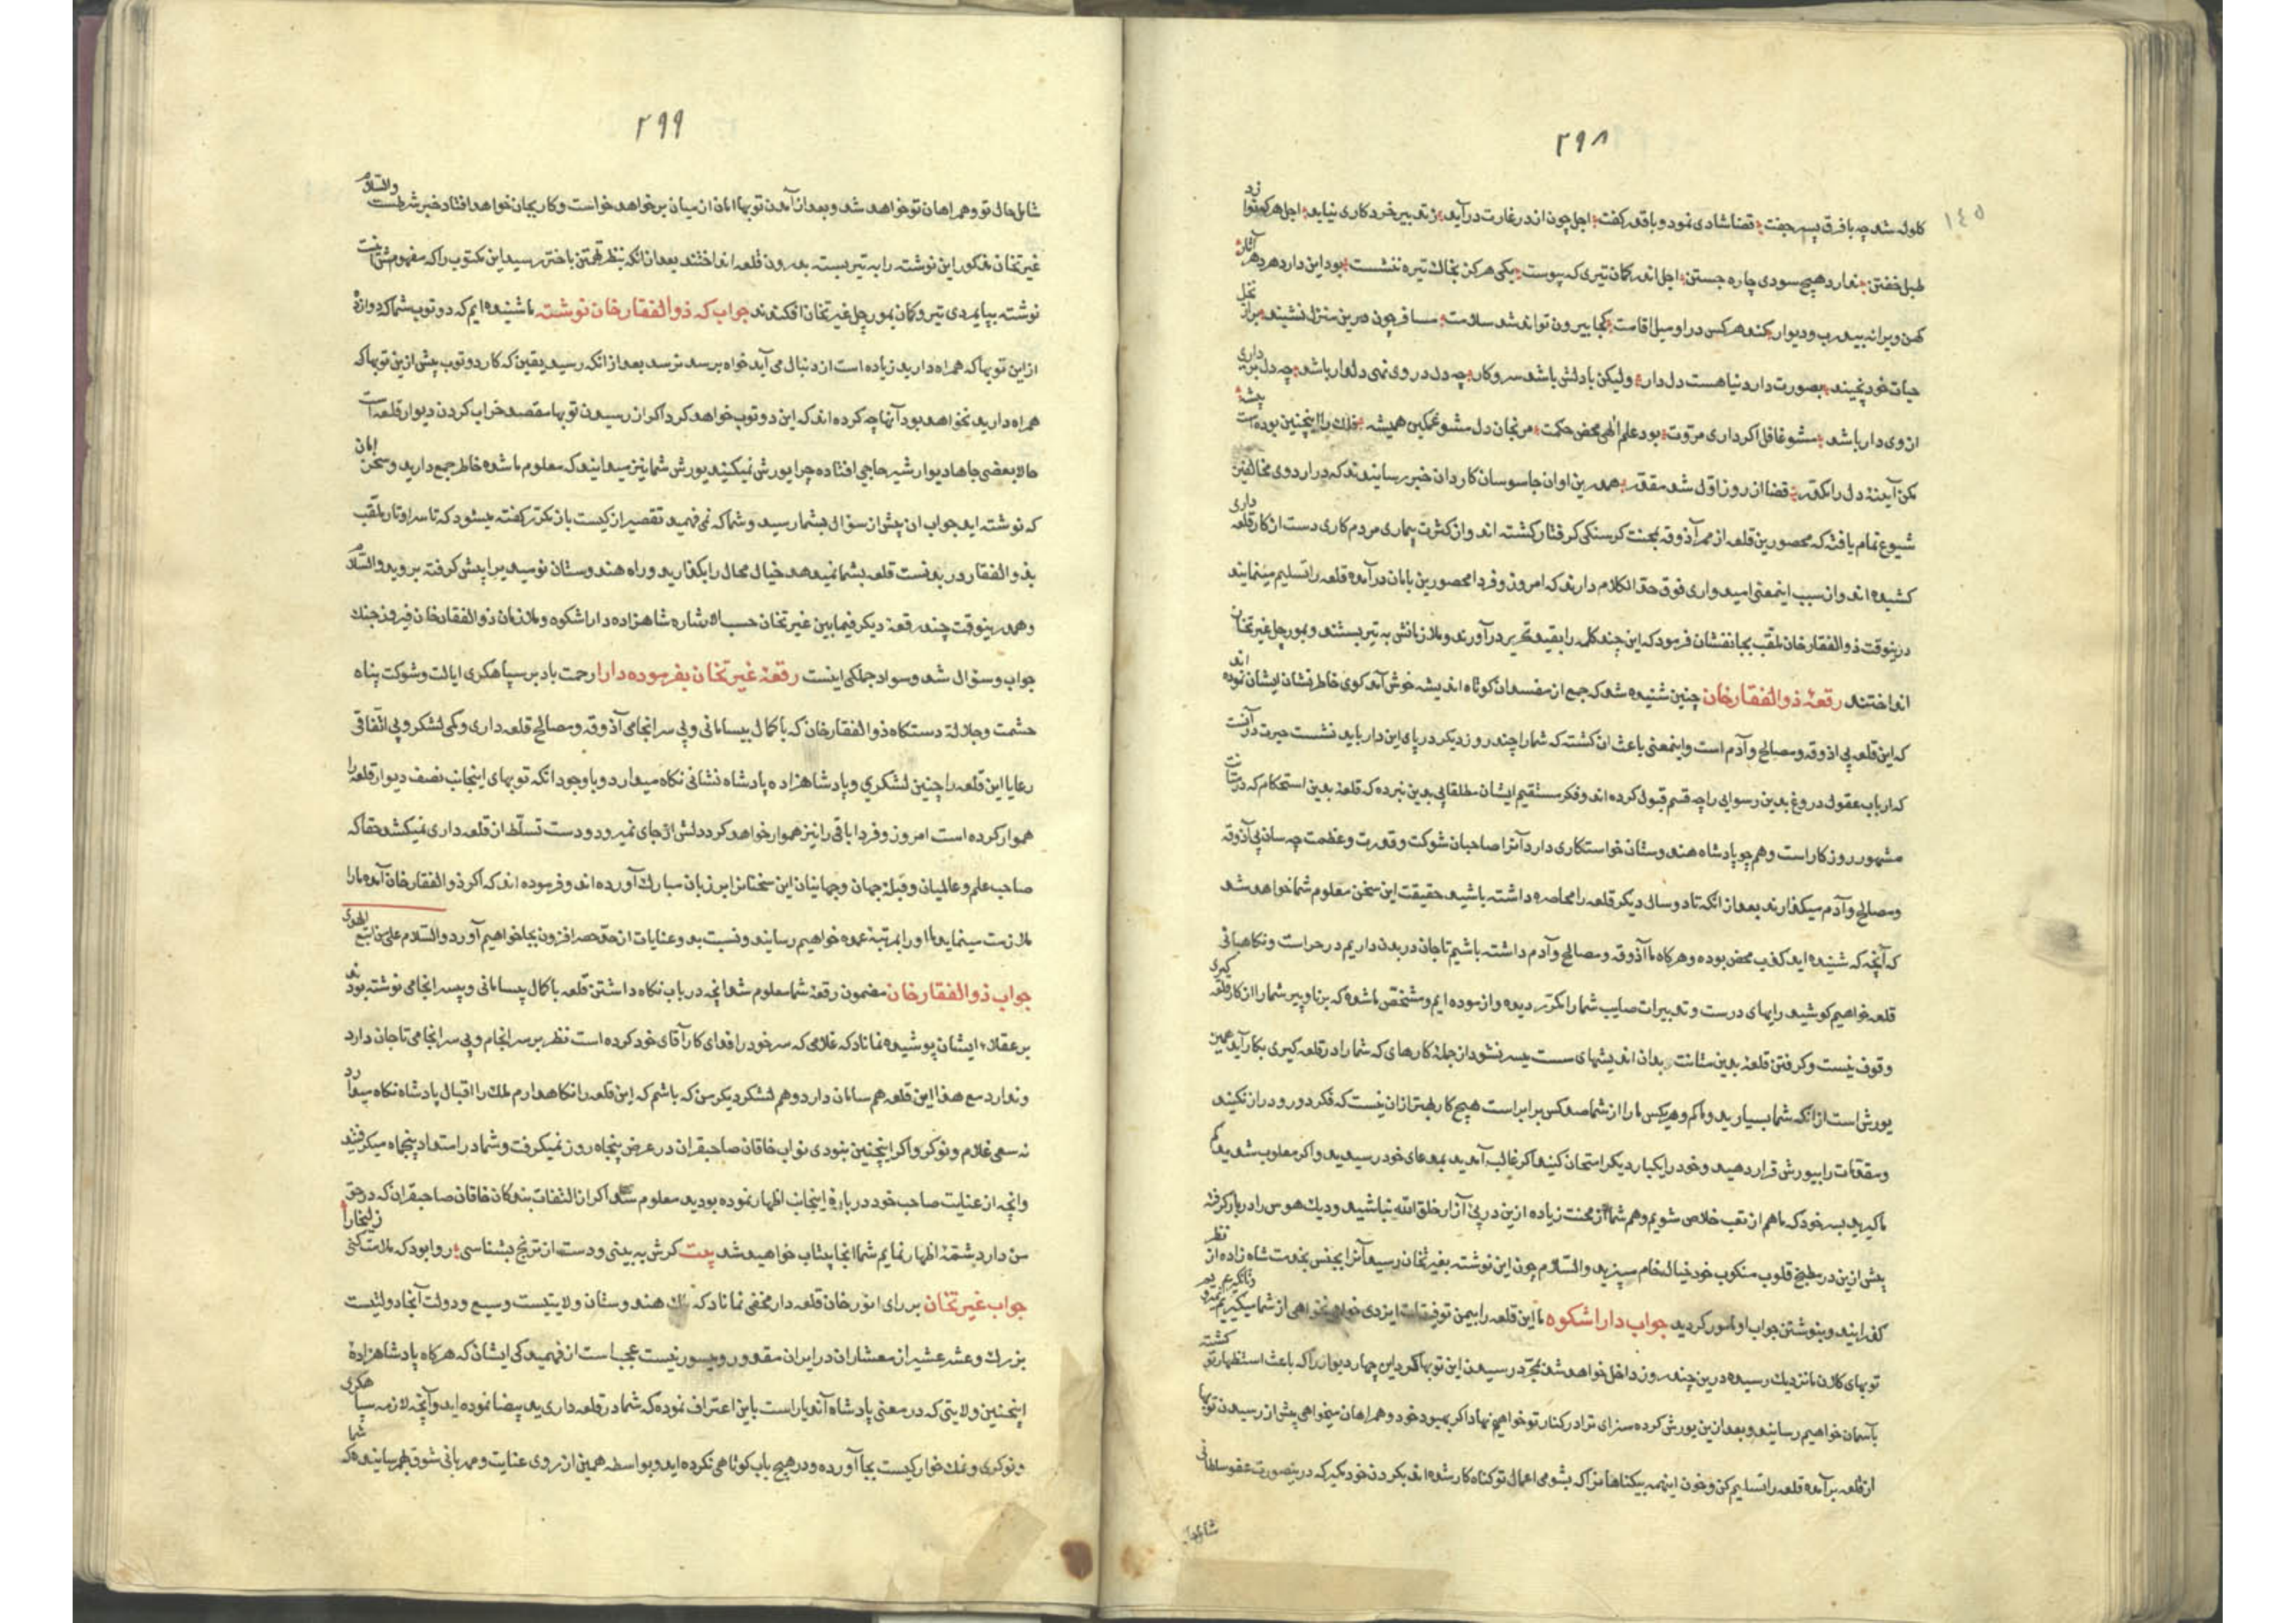 ۲۹۸
۱٤٥
کلوله شد چه با فرق پسر جفت قضا شادی نمود و باقدر کفت اجل چون اندر غارت درآید ز تدبیر خرد کاری نیاید اجل هر کو نوا زد
طبل خفتن ندارد هیچ سودی چاره جستن اجل اندر کمان تیری که پیوست یکی هرکز بخاک تیره ننشست بود این دار دهر
کهن ویرانه بیدرب و دیوار کند هر کس در او میل اقامت کجا بیرون تواند شد سلامت مسافر چون درین منزل نشیند
حیات خود نچیند بصورت دار دنیا هست دل دار ولیکن با دلش باشد سر و کار چه دل در وی نهی دلدار باشد چه دل بر داری
از وی دار باشد مشو غافل اکر داری مروت بود علم الهی محض حکمت مرنجان دل مشو غمکین همیشه فلک را اینچنین بوده است پیشه
مکن آیینه دل را مکدر قضا از روز اول شد مقدر همدرین اوان جاسوسان کاردان خبر رسانیدند که در اردوی مخالفین
شیوع تمام یافته که محصورین قلعه از ممر آذوقه بمحنت کرسنکی کرفتار کشته اند و از کثرت بیماری مردم کاری دست از کار قلعه داری
کشیده اند و از سبب اینمعنی امیدواری فوق حد الکلام دارند که امروز و فردا محصورین بامان درآمده قلعه را تسلیم مینمایند
درینوقت ذوالفقارخان ملقب بجانفشان فرمود که این چند کلمه را بقید تحریر درآورند و ملازمانش به تیر بستند و بمورچل غیرتخان
انداختند رقعهٔ ذوالفقارخان چنین شنیده شد که جمع از مفسدان کوتاه اندیشه خوش آمد کوی خاطر نشان ایشان نموده اند
که این قلعه بی اذوقه و مصالح و آدم است و اینمعنی باعث ان کشته که شما را چند روز دیکر در پای این دار باید نشست حیرت در آنست
که ارباب عقول دروغ بدین رسوایی را چه قسم قبول کرده اند و فکر مستقیم ایشان مطلقا پی بدین نبرده که قلعهٔ بدین استحکام که در متانت
مشهور روزکار است و همچو پادشاه هندوستان خواستکاری دارد آنرا صاحبان شوکت و قدرت و عظمت چه سان بی آذوقه
و مصالح و آدم میکذارند بعد از انکه تا دو سال دیکر قلعه را محاصره داشته باشید حقیقت این سخن معلوم شما خواهد شد
که آنچه که شنیده اید کذب محض بوده و هر کاه ما آذوقه و مصالح و آدم داشته باشیم تا جان در بدن داریم در حراست و نکاهبانی
قلعه خواهیم کوشید رایهای درست و تدبیرات صایب شما را مکرر دیده و ازموده ایم و مشخص ما شده که برنا و پیر شما را از کار قلعه کیری
وقوف نیست و کرفتن قلعهٔ بدین متانت بدان اندیشهای سست میسر نشود از جمله کارهای که شما را در قلعه کیری بکار آید همین
یورش است از انکه شما بسیارید و ما کم و هر یکس ما را از شما صد کس برابر است هیچ کار بهتر از ان نیست که فکر دور و دراز نکنید
و مقدمات را بیورش قرار دهید و خود را یکبار دیکر امتحان کنید اکر غالب آمدید بمدعای خود رسیدید و اکر مغلوب شدید
ما کیرید به خود که ما هم از تعب خلاص شویم و هم شما از محنت زیاده ازین در پی آزار خلق الله نباشید و دیک هوس را دربار کرفته
پیش ازین در مطبخ قلوب منکوب خود خیال خام مپزید والسلام چون این نوشته بغیرتخان رسید آنرا بجنس بخدمت شاه زاده از نظر
کذرانید و بنوشتن جواب او مامور کردید جواب داراشکوه ما این قلعه را بیمن توفیقات ایزدی خواهی نخواهی از شما میکیریم
توبهای کلان ما نزدیک رسیده درین چند روز داخل خواهد شد بمجرد رسیدن این توبها کرد این چهار دیوار را که باعث استظهار تو کشته
بآسمان خواهیم رسانید و بعد ازین یورش کرده سزای ترا در کنار تو خواهیم نهاد اکر بهبود خود و همراهان میخواهی پیش از رسیدن توبها
از قلعه برآمده قلعه را تسلیم کن و خون اینهمه بیکناهانرا که بشومی اعمال تو کناه کار شده اند بکردن خود مکیر که در ینصورت عفو سلطانی
شامل حال
۲۹۹
شامل حال تو و همراهان تو خواهد شد و بعد از آمدن توبها امان از میان بر خواهد خواست و کار بجان خواهد افتاد خبر شرطست والسلام
غیرتخان مذکور این نوشته را به تیر بسته بدرون قلعه انداختند بعد از انکه بنظر تهمتن باختر رسید این مکتوب را که مفهومش اینست
نوشته بپایمردی تیر و کمان بمورچل غیرتخان افکندند جواب که ذوالفقارخان نوشته ما شنیده ایم که دو توب شما که دوازده
از این توبها که همراه دارید زیاده است از دنبال می آید خواه برسد نرسد بعد از انکه رسید یقین که کار دو توب پیش ازین توبها که
همراه دارید نخواهد بود آنها چه کرده اند که این دو توب خواهد کرد اکر از رسیدن توبها مقصد خراب کردن دیوار قلعه است
حالا بعضی جاها دیوار شیر حاجی افتاده چرا یورش نمیکنید یورش شما نیز میدانید که معلوم ما شده خاطر جمع دارید و سخن امان
که نوشته اید جواب ان پیش از سوال بشما رسید و شما که نمی فهمید تقصیر از کیست باز مکرر کفته میشود که تا سر او تار ملقب
بذوالفقار در بدنست قلعه بشما نمیدهد خیال محال را بکذارید و راه هندوستان نومید مرا پیش کرفته بروید والسلام
و همدرینوقت چند رقعهٔ دیکر فیمابین غیرتخان حسب الاشاره شاهزاده داراشکوه و ملازمان ذوالفقارخان فیروز جنک
جواب و سوال شد و سواد جملکی اینست رقعهٔ غیرتخان بفرموده دارا رحمت باد بر سپاهکری ایالت و شوکت پناه
حشمت و جلالة دستکاه ذوالفقارخان که با کمال بیسامانی و بی سرانجامی آذوقه و مصالح قلعه داری و کمی لشکر و بی اتفاقی
رعایا این قلعه را چنین لشکری و پادشاهزاده پادشاه نشانی نکاه میدارد و با وجود انکه توبهای اینجانب نصف دیوار قلعه را
هموار کرده است امروز و فردا باقی را نیز هموار خواهد کرد دلش از جای نمیرود و دست تسلط از قلعه داری نمیکشد حقا که
صاحب علم و عالمیان و قبلهٔ جهان و جهانیان این سخنانرا بر زبان مبارک آورده اند و فرموده اند که اکر ذوالفقارخان آمده ما را
ملازمت مینماید ما او را بمرتبهٔ عمده خواهیم رسانید و نسبت بدو عنایات از حد حصر افزون بجا خواهیم آورد والسلام علی من اتبع الهدی
جواب ذوالفقارخان مضمون رقعهٔ شما معلوم شد انچه در باب نکاه داشتن قلعه با کمال بیسامانی و بیسرانجامی نوشته بودند
بر عقلاء ایشان پوشیده نماناد که غلامی که سر خود را فدای کار آقای خود کرده است نظر بر سرانجام و بی سرانجامی تا جان دارد
ندارد مع هذا این قلعه هم سامان دارد و هم لشکر دیکر من که باشم که این قلعه را نکاهدارم ملک را اقبال پادشاه نکاه میدارد
نه سعی غلام و نوکر و اکر اینچنین نبودی نواب خاقان صاحبقران در عرض پنجاه روز نمیکرفت و شما در استعداد پنجماه میکرفتید
و انچه از عنایت صاحب خود در بارهٔ اینجانب اظهار نموده بودید معلوم شد اکر از التفات بندکان خاقان صاحبقران که در حق
من دارد شمهٔ اظهار نمایم شما انجا بیتاب خواهید شد بیت کرش به بینی و دست از ترنج بشناسی روا بود که ملامت کنی زلیخا را
جواب غیرتخان بر رای انور خان قلعه دار مخفی نماناد که ملک هندوستان ولایتیست وسیع و دولت آنجا دولتیست
بزرک و عشر عشیر از معشار ان در ایران مقدور و میسور نیست عجب است از فهمیدکی ایشان که هر کاه پادشاهزادهٔ
اینچنین ولایتی که در معنی پادشاه آندیار است باین اعتراف نموده که شما در قلعه داری ید بیضا نموده اید و آنچه لازمه سپاهکری
و نوکری و نمک خوارکیست بجا آورده و در هیچ باب کوتاهی نکرده اید و بواسطه همین از روی عنایت و مهربانی شوق بهم رسانیده که شما